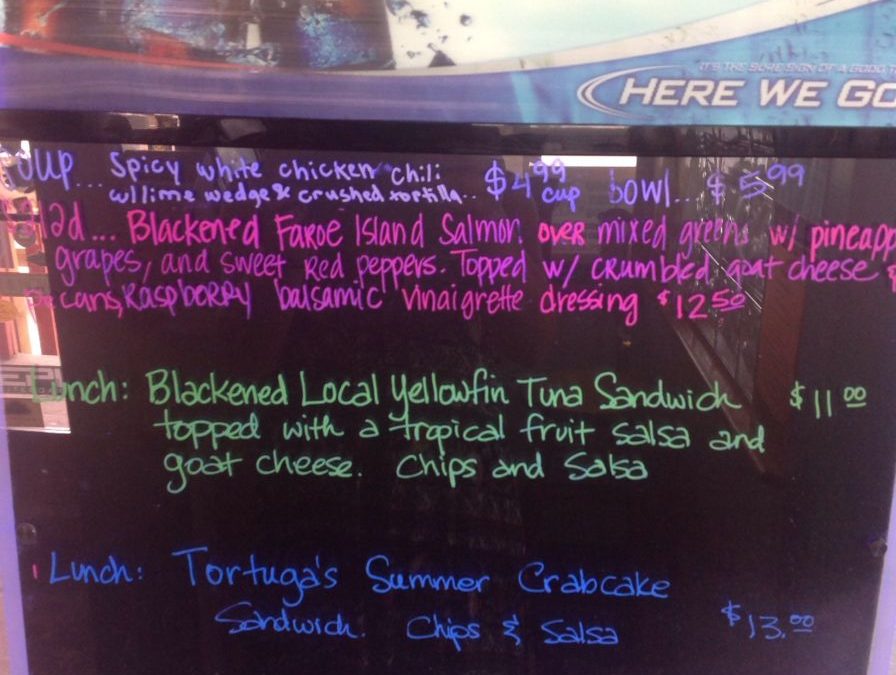 IT'S THE SURE SIGN OF A GOOD T
HERE WE GO
Soup... Spicy white chicken chili $4.99 cup bowl.. $5.99
w/ lime wedge & crushed tortilla..
Salad... Blackened Faroe Island Salmon over mixed greens w/ pineapp
grapes, and sweet Red peppers. Topped w/ crumbled goat cheese &
Pecans, Raspberry balsamic vinaigrette dressing $12.50
Lunch: Blackened Local Yellowfin Tuna Sandwich $11.00
topped with a tropical fruit salsa and
goat cheese. Chips and Salsa
Lunch: Tortuga's Summer Crabcake
Sandwich. Chips & Salsa $13.00